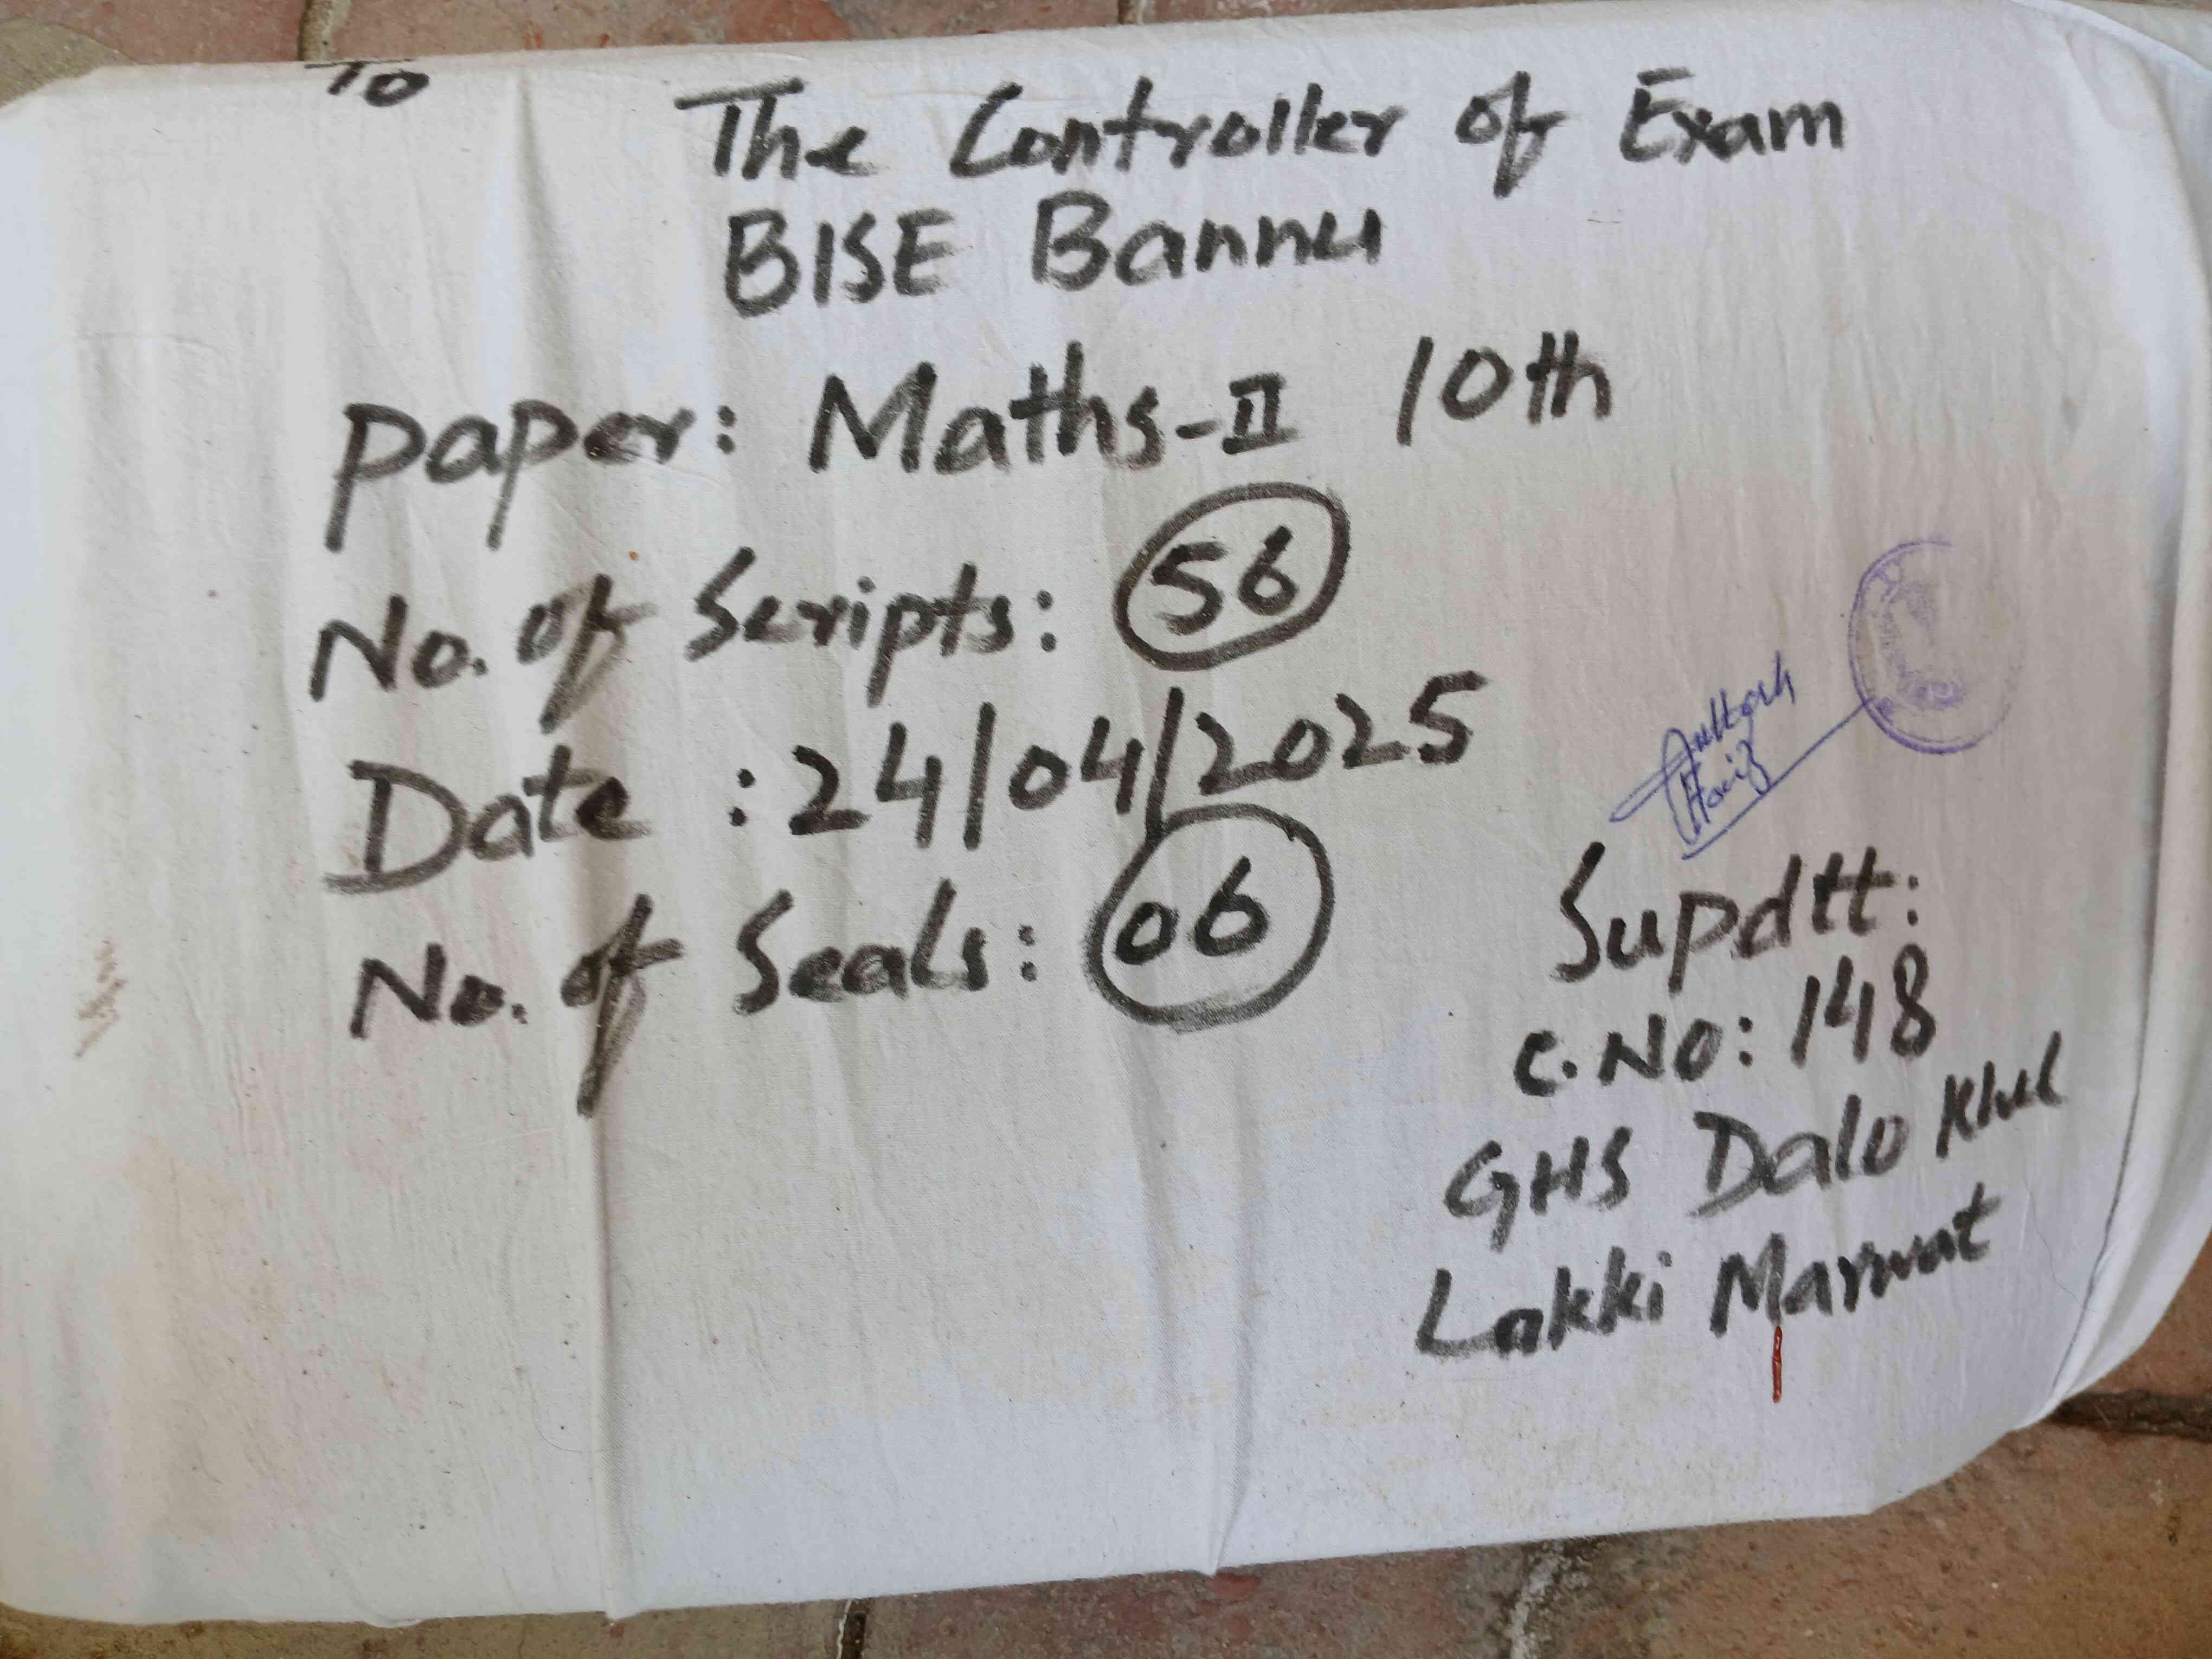 To
The Controller of Exam
BISE Bannu
Paper: Maths-II 10th
No. of Scripts: 56
Date : 24/04/2025
No. of Seals: 06
Supdtt:
C.No: 148
GHS Dalo Khel
Lakki Marwat